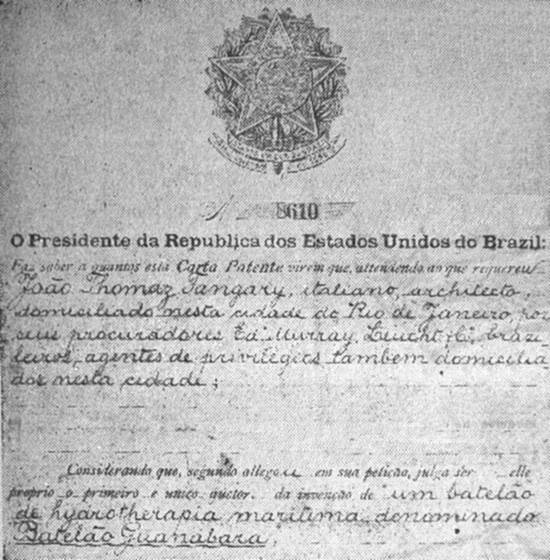 8610
O Presidente da Republica dos Estados Unidos do Brazil:
Faz saber a quantos esta Carta Patente virem que, attendendo ao que requereu
João Thomaz Sangary, italiano, architecto,
domiciliado nesta cidade do Rio de Janeiro, por
seus procuradores Ed. Murray, Leucht & C., brazi-
leiros, agentes de privilegios tambem domicilia-
dos nesta cidade;
Considerando que, segundo allegou em sua petição, julga ser elle
proprio o primeiro e unico auctor da invenção de um batelão
de hydrotherapia maritima, denominado
Batelão Guanabara,